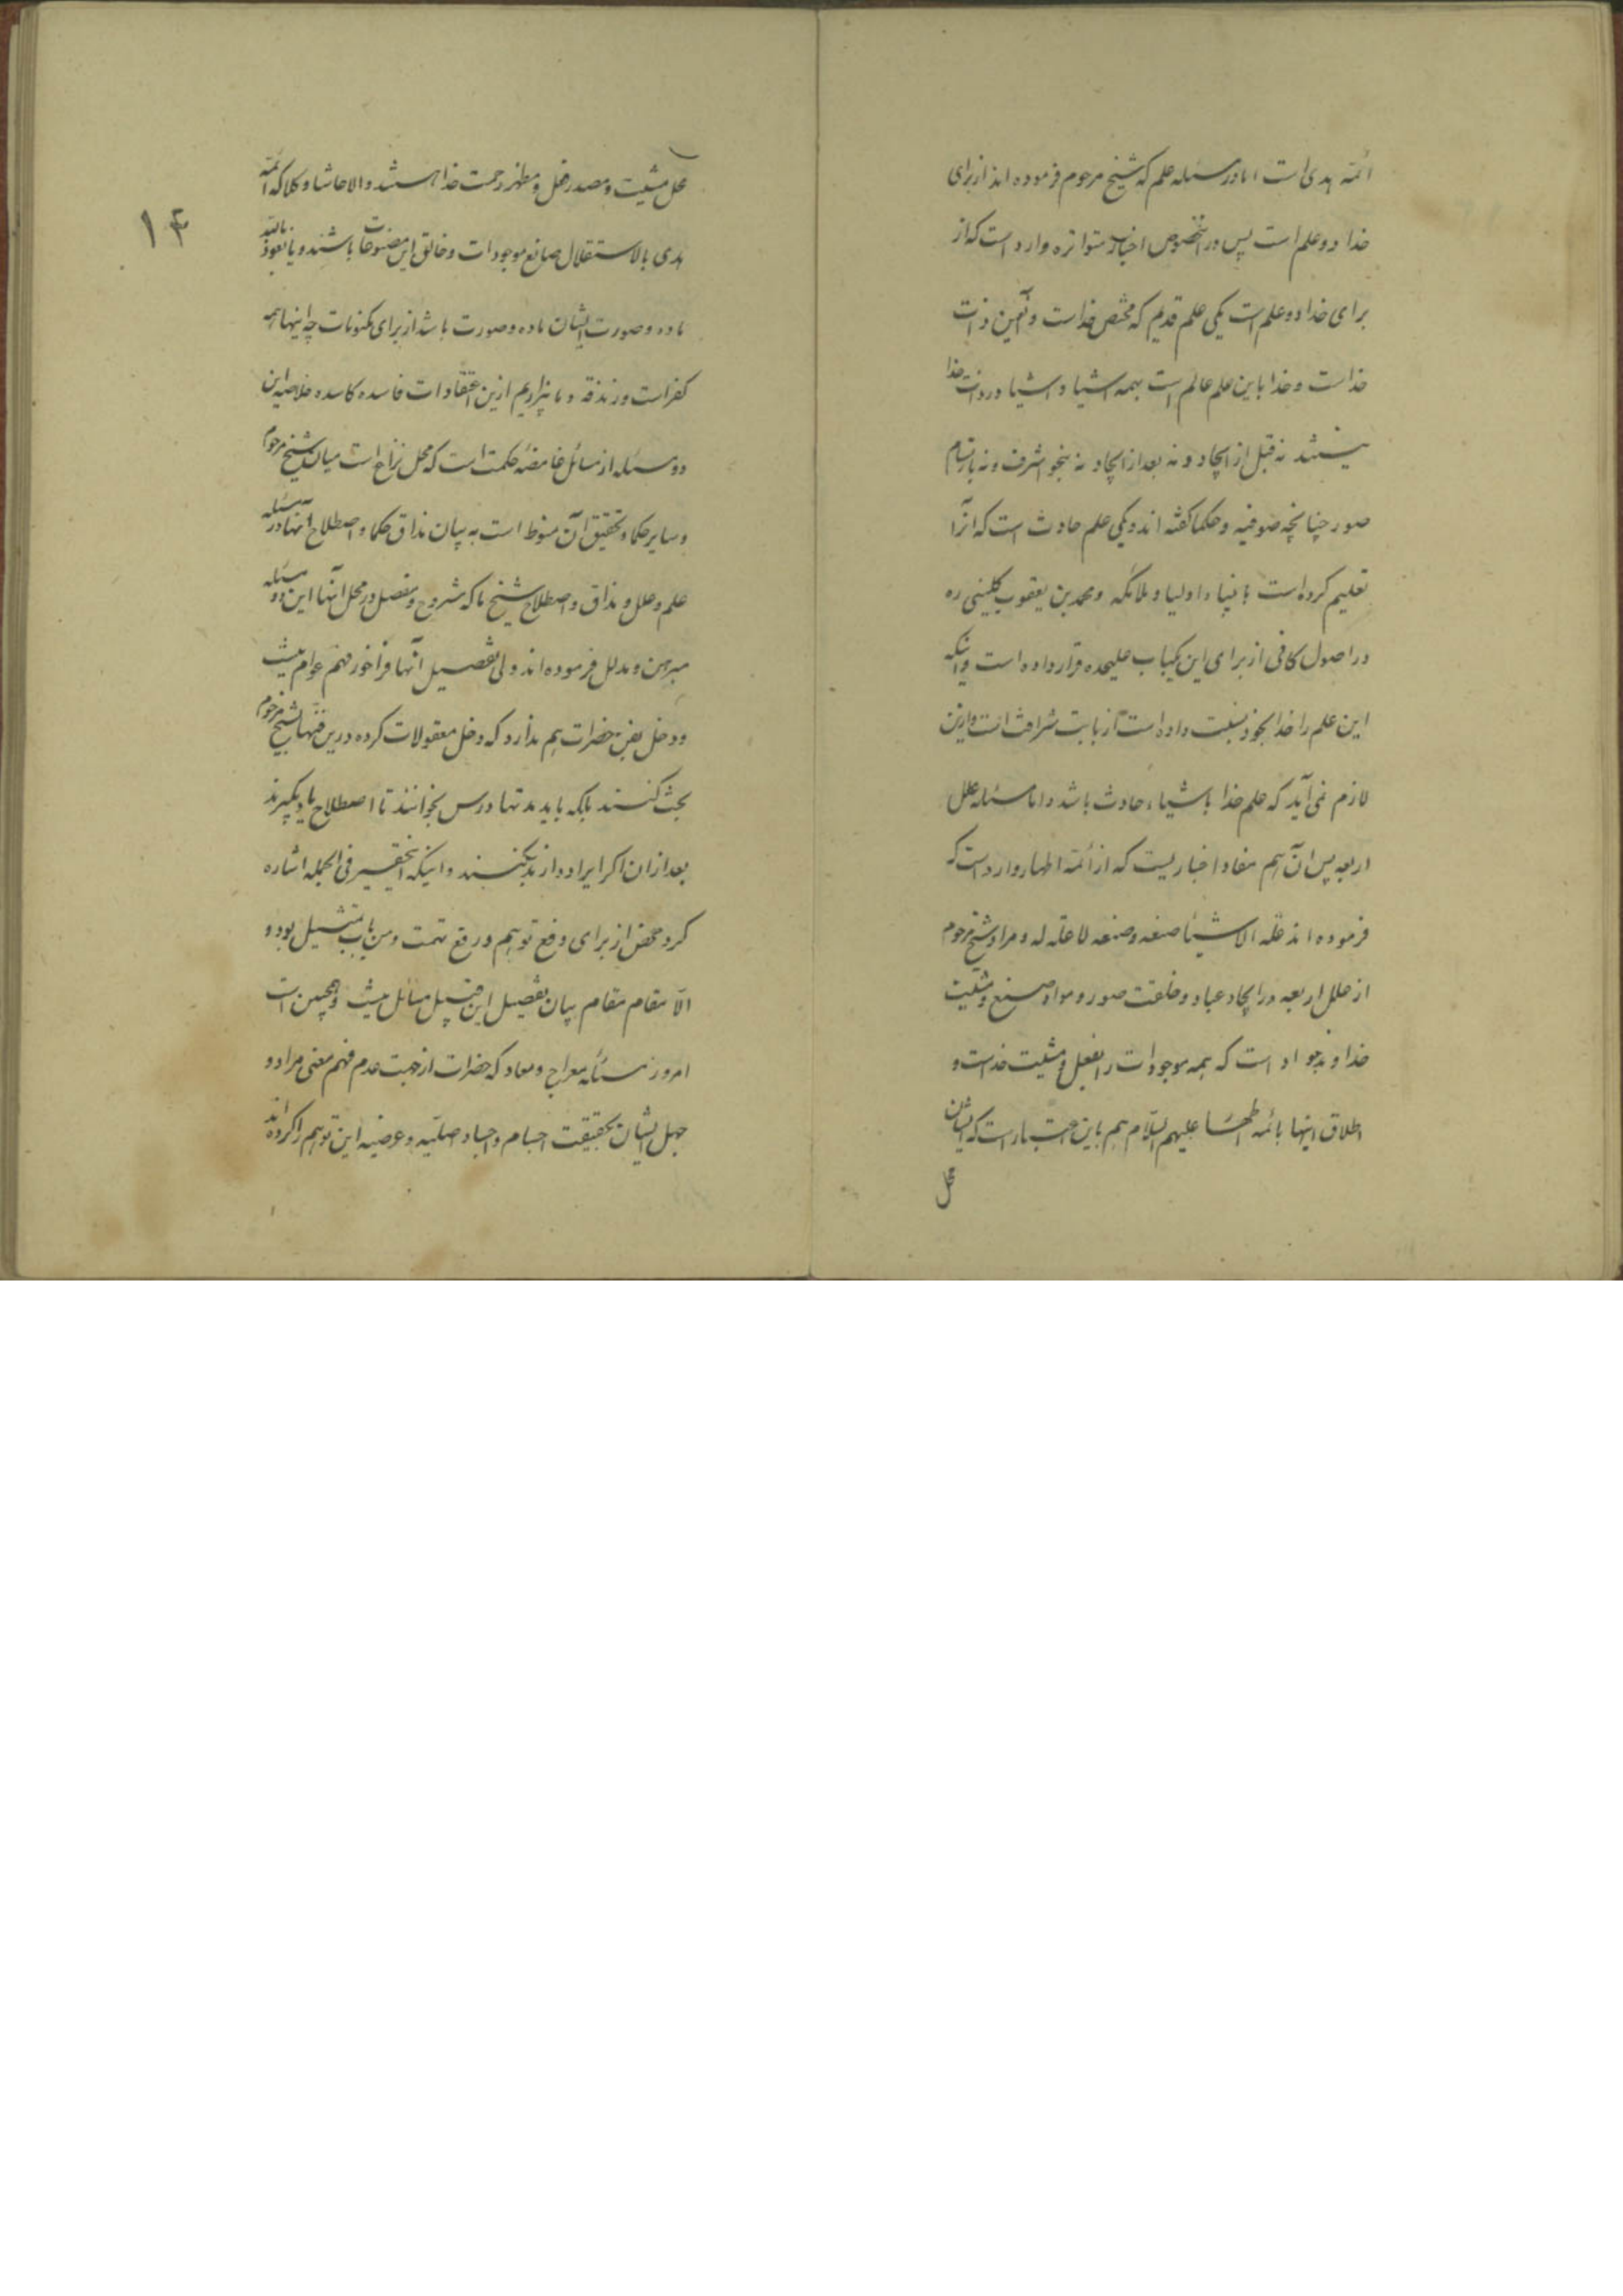 ائمه هدی است اما در مسئله علم که شیخ مرحوم فرموده اند از برای
خدا دو علم است پس در اینخصوص اخبار متواتره وارد است که از
برای خدا دو علم است یکی علم قدیم که مختص خداست و آنعین ذات
خداست و خدا باین علم عالم است بهمه اشیا و اشیا در ذات خدا
نیستند نه قبل از ایجاد و نه بعد از ایجاد نه بنحو اشرف و نه بارتسام
صور چنانچه صوفیه و حکما گفته اند و یکی علم حادث است که آنرا
تعلیم کرده است بانبیاء و اولیا و ملائکه و محمد بن یعقوب کلینی ره
در اصول کافی از برای این یکباب علیحده قرار داده است و اینکه
این علم را خدا بخود نسبت داده است از بابت شرافت است و ازین
لازم نمی آید که علم خدا باشیاء حادث باشد و اما مسئله علل
اربعه پس آن هم مفاد اخباریست که از ائمه اطهار وارد است که
فرموده اند علة الاشیاء صنعه و صنعه لا علة له و مراد شیخ مرحوم
از علل اربعه در ایجاد عباد و خلقت صور و مواد صنع و مشیت
خداوند جواد است که همه موجودات را بفعل و مشیت خداست و
اطلاق اینها بائمه اطهار علیهم السلام هم باین اعتبار است که ایشان
محل
محل مشیت و مصدر فعل و مظهر رحمت خدا هستند و الا حاشا و کلا که ائمه
۱۴
هدی بالاستقلال صانع موجودات و خالق این مصنوعات باشند و یا نعوذ بالله
ماده و صورت ایشان ماده و صورت باشد از برای مکنونات چه اینها همه
کفر است و زندقه و ما بیزاریم ازین اعتقادات فاسده کاسده خلاصه این
دو مسئله از مسائل غامضه حکمت است که محل نزاع است میان شیخ مرحوم
و سایر حکما و تحقیق آن منوط است به بیان مذاق حکما و اصطلاح آنها در مسئله
علم و علل و مذاق و اصطلاح شیخ ما که مشروح و مفصل در محل آنها این دو مسئله
مبرهن و مدلل فرموده اند ولی تفصیل آنها فراخور فهم عوام نیست
و دخل بفن حضرات هم ندارد که دخل معقولات کرده درین فنها بشیخ مرحوم
بحث کنند بلکه باید مدتها درس بخوانند تا اصطلاح یاد بگیرند
بعد از ان اکر ایراد دارند بکنند و اینکه اینحقیر فی الجمله اشاره
کرد محض از برای دفع توهم و رفع تهمت و من باب تمثیل بود و
الا مقام مقام بیان تفصیل این قبیل مسائل نیست و همچنین است
امروز مسئله معراج و معاد که حضرات از جهت عدم فهم معنی مراد و
جهل ایشان بحقیقت اجسام و اجساد اصلیه و عرضیه این توهم را کرده اند